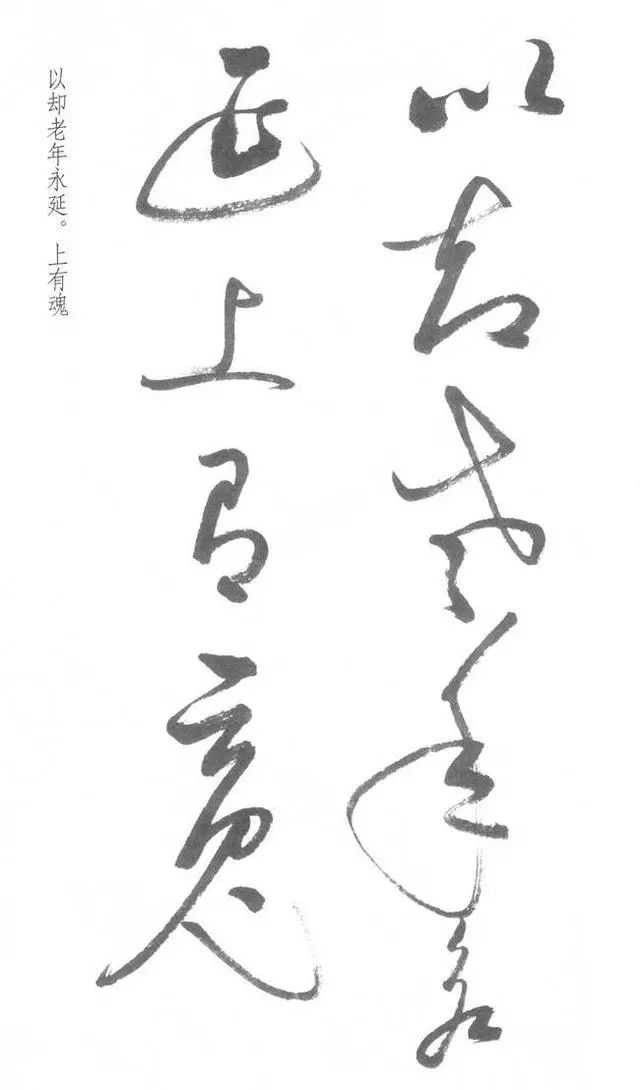 以却老年永
延上有魂
以却老年永延。上有魂